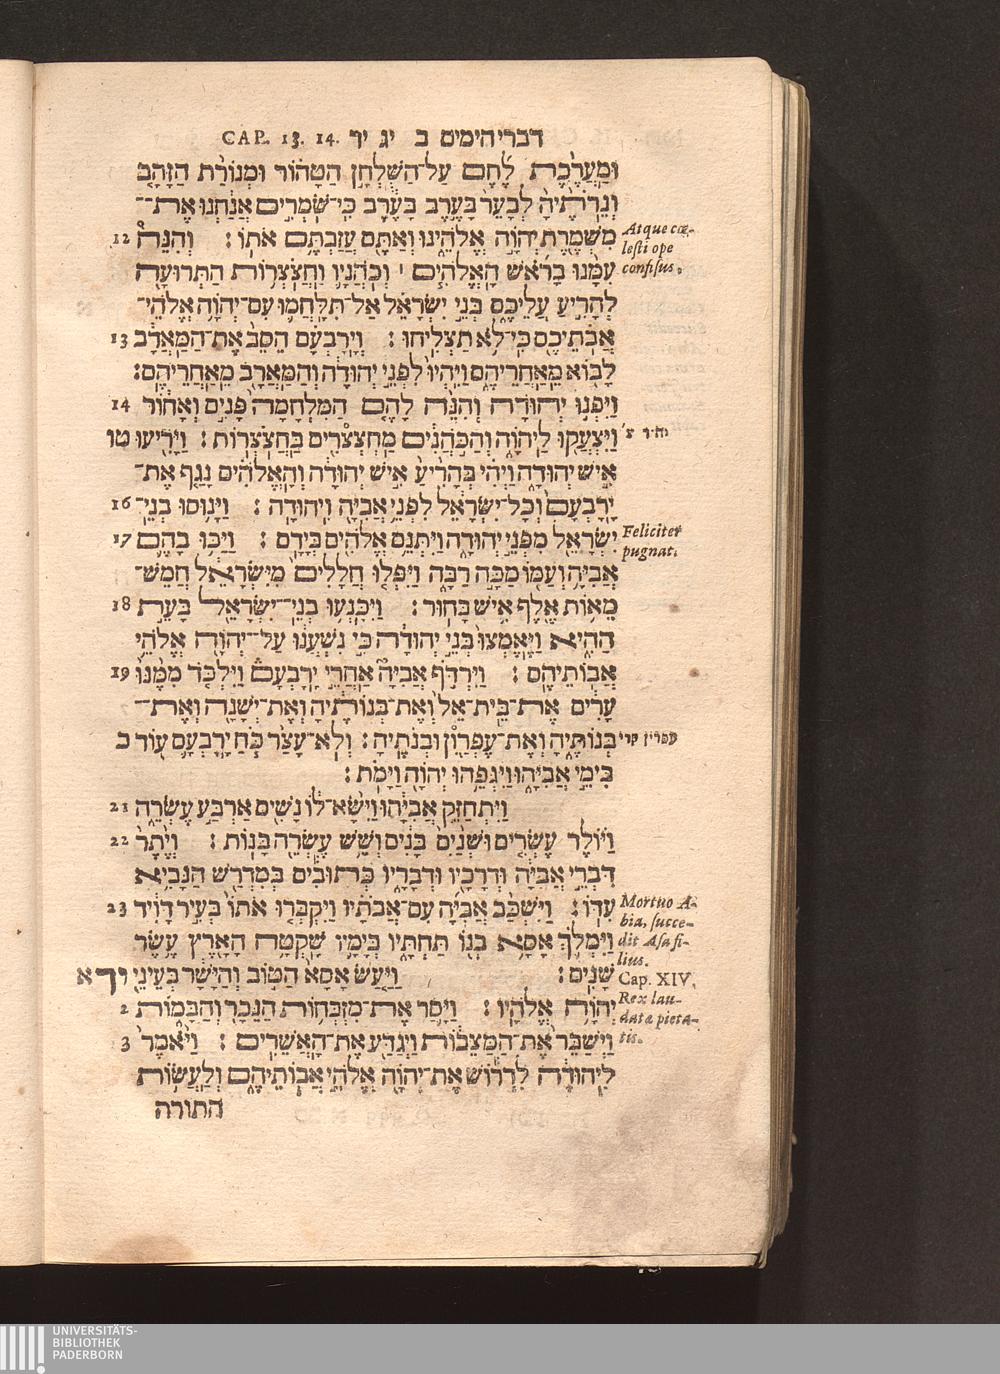 CAP. 13. 14. דברי הימים ב יג יד
וּמַעֲרֶכֶת לֶחֶם עַל־הַשֻּׁלְחָן הַטָּהוֹר וּמְנוֹרַת הַזָּהָב
וְנֵרֹתֶיהָ לְבָעֵר בָּעֶרֶב בָּעֶרֶב כִּי־שֹׁמְרִים אֲנַחְנוּ אֶת־
מִשְׁמֶרֶת יְהוָֹה אֱלֹהֵינוּ וְאַתֶּם עֲזַבְתֶּם אֹתוֹ׃ וְהִנֵּה 12
Atque cœ-
lesti ope
confisus.
עִמָּנוּ בָרֹאשׁ הָאֱלֹהִים ׀ וְכֹהֲנָיו וַחֲצֹצְרוֹת הַתְּרוּעָה
לְהָרִיעַ עֲלֵיכֶם בְּנֵי יִשְׂרָאֵל אַל־תִּלָּחֲמוּ עִם־יְהוָֹה אֱלֹהֵי־
אֲבֹתֵיכֶם כִּי־לֹא תַצְלִיחוּ׃ וְיָרָבְעָם הֵסֵב אֶת־הַמַּאְרָב 13
לָבוֹא מֵאַחֲרֵיהֶם וַיִּהְיוּ לִפְנֵי יְהוּדָה וְהַמַּאְרָב מֵאַחֲרֵיהֶם׃
וַיִּפְנוּ יְהוּדָה וְהִנֵּה לָהֶם הַמִּלְחָמָה פָּנִים וְאָחוֹר 14
וַיִּצְעֲקוּ לַיהוָֹה וְהַכֹּהֲנִים מַחְצְצרִים בַּחֲצֹצְרוֹת׃ וַיָּרִיעוּ טו
אִישׁ יְהוּדָה וַיְהִי בְּהָרִיעַ אִישׁ יְהוּדָה וְהָאֱלֹהִים נָגַף אֶת־
יָרָבְעָם וְכָל־יִשְׂרָאֵל לִפְנֵי אֲבִיָּה וִיהוּדָה׃ וַיָּנוּסוּ בְנֵי־ 16
יִשְׂרָאֵל מִפְּנֵי יְהוּדָה וַיִּתְּנֵם אֱלֹהִים בְּיָדָם׃ וַיַּכּוּ בָהֶם 17
Feliciter
pugnat.
אֲבִיָּה וְעַמּוֹ מַכָּה רַבָּה וַיִּפְּלוּ חֲלָלִים מִיִּשְׂרָאֵל חֲמֵשׁ־
מֵאוֹת אֶלֶף אִישׁ בָּחוּר׃ וַיִּכָּנְעוּ בְנֵי־יִשְׂרָאֵל בָּעֵת 18
הַהִיא וַיֶּאֶמְצוּ בְּנֵי יְהוּדָה כִּי נִשְׁעֲנוּ עַל־יְהוָֹה אֱלֹהֵי
אֲבוֹתֵיהֶם׃ וַיִּרְדֹּף אֲבִיָּה אַחֲרֵי יָרָבְעָם וַיִּלְכֹּד מִמֶּנּוּ 19
עָרִים אֶת־בֵּית־אֵל וְאֶת־בְּנוֹתֶיהָ וְאֶת־יְשָׁנָה וְאֶת־
בְּנוֹתֶיהָ וְאֶת־עֶפְרַוֹן וּבְנֹתֶיהָ׃ וְלֹא־עָצַר כֹּחַ יָרָבְעָם עוֹד כ
עפרין קרי
בִּימֵי אֲבִיָּהוּ וַיִּגְּפֵהוּ יְהוָֹה וַיָּמֹת׃
וַיִּתְחַזֵּק אֲבִיָּהוּ וַיִּשָּׂא־לוֹ נָשִׁים אַרְבַּע עֶשְׂרֵה 21
וַיּוֹלֶד עֶשְׂרִים וּשְׁנַיִם בָּנִים וְשֵׁשׁ עֶשְׂרֵה בָּנוֹת׃ וְיֶתֶר 22
דִּבְרֵי אֲבִיָּה וּדְרָכָיו וּדְבָרָיו כְּתוּבִים בְּמִדְרַשׁ הַנָּבִיא
עִדּוֹ׃ וַיִּשְׁכַּב אֲבִיָּה עִם־אֲבֹתָיו וַיִּקְבְּרוּ אֹתוֹ בְּעִיר דָּוִיד 23
Mortuo A-
bia, succe-
dit Asa fi-
lius.
וַיִּמְלֹךְ אָסָא בְנוֹ תַּחְתָּיו בְּיָמָיו שָׁקְטָה הָאָרֶץ עֶשֶׂר
שָׁנִים׃ וַיַּעַשׂ אָסָא הַטּוֹב וְהַיָּשָׁר בְּעֵינֵי יד א
Cap. XIV.
Rex lau-
datæ pieta-
tis.
יְהוָֹה אֱלֹהָיו׃ וַיָּסַר אֶת־מִזְבְּחוֹת הַנֵּכָר וְהַבָּמוֹת 2
וַיְשַׁבֵּר אֶת־הַמַּצֵּבוֹת וַיְגַדַּע אֶת־הָאֲשֵׁרִים׃ וַיֹּאמֶר 3
לִיהוּדָה לִדְרוֹשׁ אֶת־יְהוָֹה אֱלֹהֵי אֲבוֹתֵיהֶם וְלַעֲשׂוֹת
התורה
UNIVERSITÄTS-
BIBLIOTHEK
PADERBORN